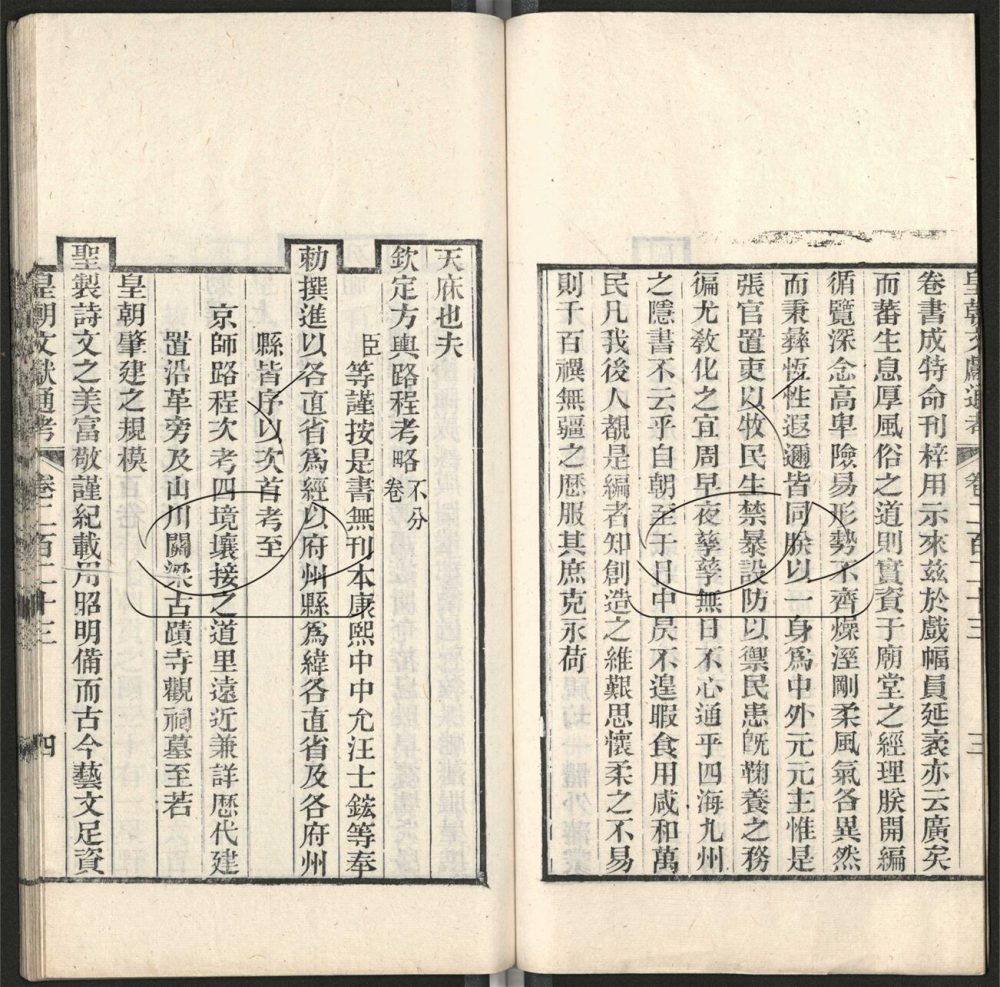 皇朝文獻通考 卷二百二十三 三
卷書成特命刊梓用示來茲於戲幅員延袤亦云廣矣
而蕃生息厚風俗之道則實資于廟堂之經理朕開編
循覽深念高卑險易形勢不齊燥溼剛柔風氣各異然
而秉彝恆性遐邇皆同朕以一身爲中外元元主惟是
張官置吏以牧民生禁暴設防以禦民患旣鞠養之務
徧尤敎化之宜周早夜孳孳無日不心通乎四海九州
之隱書不云乎自朝至于日中昃不遑暇食用咸和萬
民凡我後人覩是編者知創造之維艱思懷柔之不易
則千百禩無疆之歷服其庶克永荷
天庥也夫
欽定方輿路程考略不分卷
臣等謹按是書無刊本康熙中中允汪士鋐等奉
勅撰進以各直省爲經以府州縣爲緯各直省及各府州
縣皆序以次首考至
京師路程次考四境壤接之道里遠近兼詳歷代建
置沿革旁及山川關梁古蹟寺觀祠墓至若
皇朝肇建之規模
聖製詩文之美富敬謹紀載用昭明備而古今藝文足資
皇朝文獻通考 卷二百二十三 四